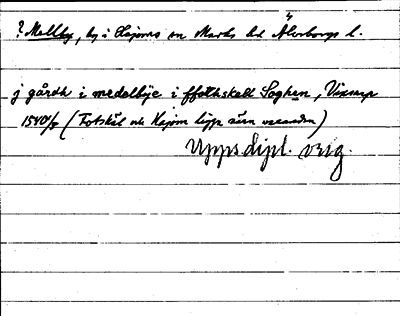 ? Mellby, by i Hajoms sn Marks hd Älvsborgs l.
j gårdh i medelbÿe i ffothskall Soghen, Vixerup
1540 1/5 (Fotskäl och Hajom ligga nära varandra)
Uppsdipl. orig.